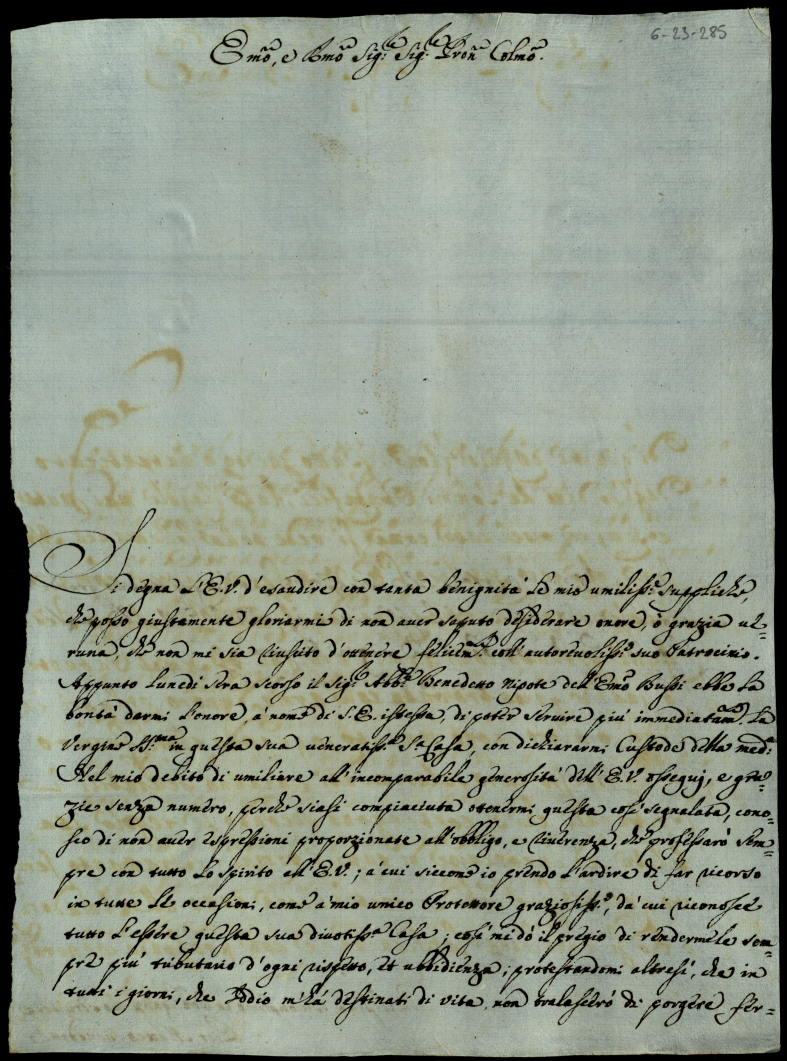 6-23-285
Emo, e Rmo Sig.re Sig.re Pron Colmo.
Si degna L'E.V. d'esaudire con tanta benignità le mie umiliss.e suppliche,
che posso giustamente gloriarmi di non aver saputo desiderare onore, ò grazia ve-
runa, che non mi sia riuscito d'ottenere felicem.te coll'autorevoliss.o suo Patrocinio.
Appunto Lunedì sera scorso il Sig.r Abb.e Benedetto Nipote dell'Emo Bussi ebbe la
bontà darmi l'onore, à nome di S.E. istessa, di poter servire più immediatam.e La
Vergine SS.ma in questa sua veneratiss.a S.ta Casa, con dichiararmi Custode della med.a
Nel mio debito di umiliare all'incomparabile generosità dell'E.V. ossequj, e gra-
zie senza numero, perche siasi compiaciuta ottenermi questa così segnalata, cono-
sco di non aver espressioni proporzionate all'obbligo, e riverenza, che professarò sem-
pre con tutto lo spirito all'E.V.; à cui siccome io prendo l'ardire di far ricorso
in tutte le occasioni, come à mio unico Protettore graziosiss.o, da cui riconosce
tutto l'essere questa sua divotiss.a Casa; così mi dò il pregio di rendermele sem-
pre più tributario d'ogni rispetto, et ubbidienza; protestandomi altresì, che in
tutti i giorni, che Iddio m'hà destinati di vita, non tralascierò di porgere fer-